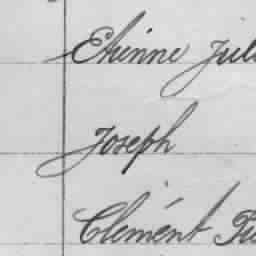 Etienne Jul
Joseph
Clemént